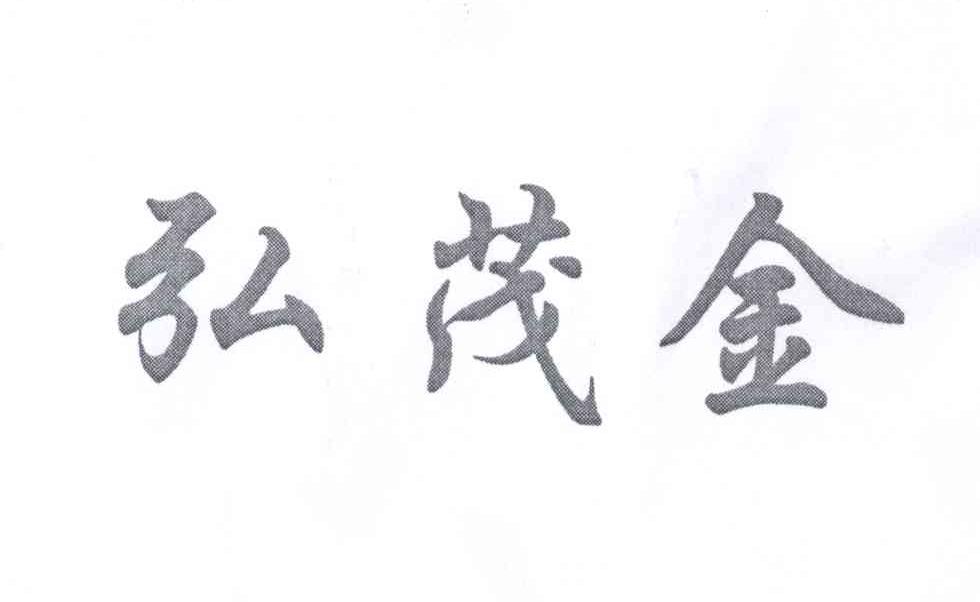 弘茂金